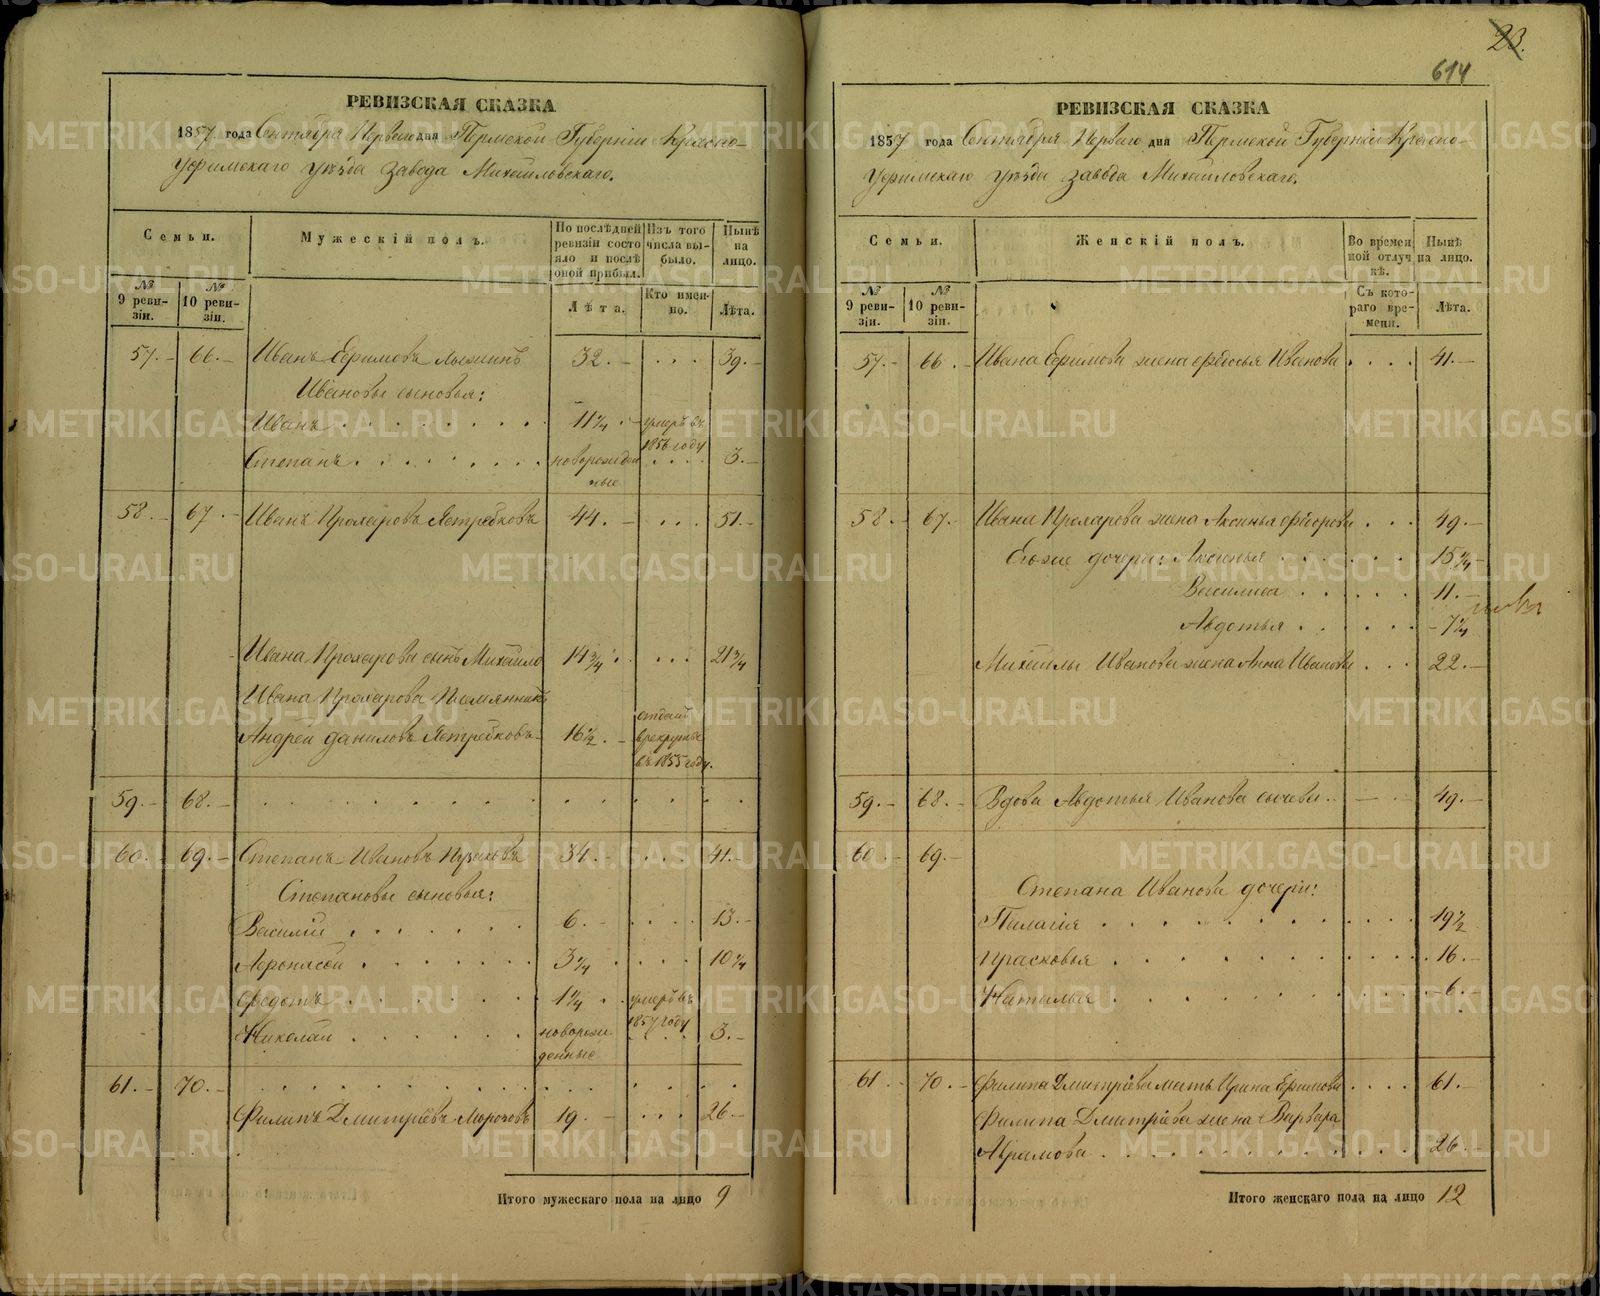 23.
614
РЕВИЗСКАЯ СКАЗКА
1857 года Сентября Перваго дня Пермской Губерніи Красно-
Уфимскаго уѣзда завода Михайловскаго.
Семьи.
Мужескій полъ.
По послѣдней ревизіи состояло и послѣ оной прибыл.
Изъ того числа выбыло.
Нынѣ на лицо.
№ 9 ревизіи.
№ 10 ревизіи.
Лѣта.
Кто именно.
Лѣта.
57. 66. Иванъ Ефимовъ 32. 39.
Ивановы сыновья:
Иванъ 11 1/4 умеръ въ 1856 году
Степанъ новорожденные 3.
58. 67. Иванъ Прохаровъ Ястребковъ 44. 51.
Ивана Прохарова сынъ Михайло 14 3/4 21 3/4
Ивана Прохарова племянникъ
Андрей Даниловъ Ястребковъ 16 1/2 отданъ в рекруты въ 1855 году.
59. 68.
60. 69. Степанъ Ивановъ 34. 41.
Степановы сыновья:
Василій 6. 13.
Афонасей 3 1/4 10 1/4
Федотъ 1 1/4 умеръ въ 1857 году
Николай новорожденные 3.
61. 70.
Филипъ Дмитріевъ Морозовъ 19 26
Итого мужескаго пола на лицо 9
РЕВИЗСКАЯ СКАЗКА
1857 года Сентября Перваго дня Пермской Губерніи Красно-
Уфимскаго уѣзда завода Михайловскаго.
Семьи.
Женскій полъ.
Во временной отлучкѣ.
Нынѣ на лицо.
№ 9 ревизіи.
№ 10 ревизіи.
Съ котораго времени.
Лѣта.
57. 66. Ивана Ефимова жена Федосья Иванова 41.
58. 67. Ивана Прохарова жена Аксинья Федорова 49.
Егоже дочери: Аксинья 15 1/4
Василиса 11.
Авдотья 7 1/4
Михайлы Иванова жена Анна Иванова 22.
59. 68. Вдова Авдотья Иванова 49.
60. 69.
Степана Иванова дочери:
Пелагія 19 1/2
Прасковья 16.
Наталья 6.
61 70. Филипа Дмитріева мать Ирина Ефимова 61.
Филипа Дмитріева жена Варвара
Абрамова 26.
Итого женскаго пола на лицо 12
METRIKI.GASO-URAL.RU